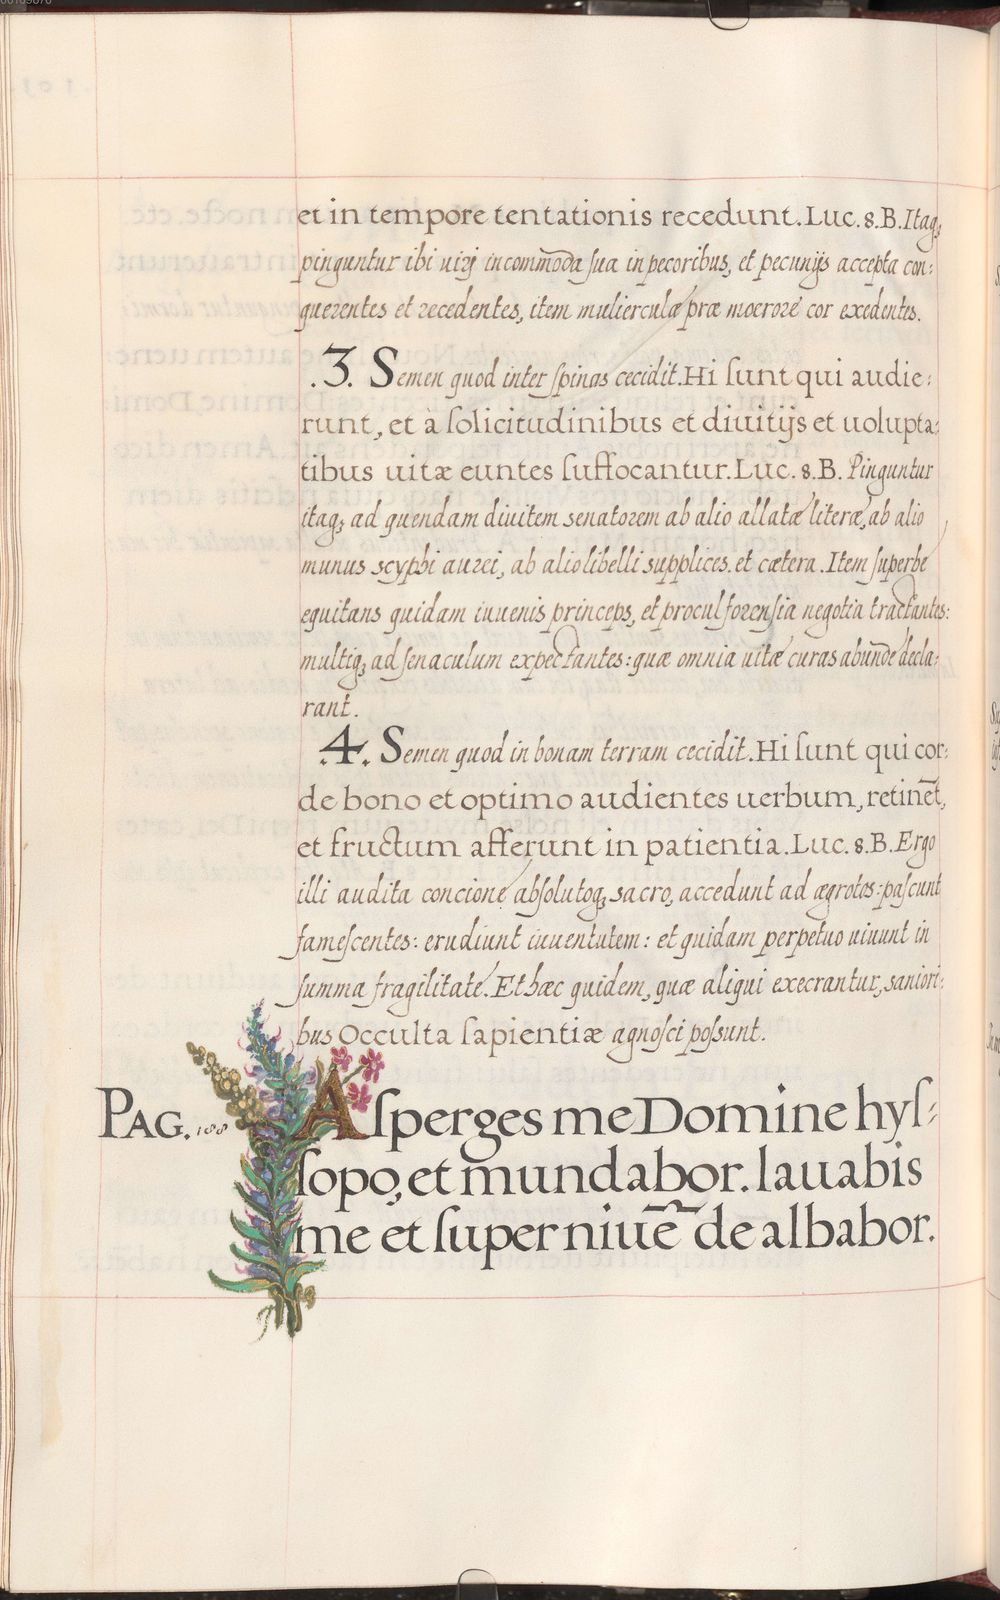 et in tempore tentationis recedunt. Luc. 8. B. Itaq;
pinguntur ibi uirj incom̄oda sua in pecoribus, et pecunijs accepta con:
querentes et recedentes, item mulierculæ præ moerore cor exedentes.
.3. Semen quod inter spinas cecidit. Hi sunt qui audie:
runt, et à solicitudinibus et diuitijs et uolupta:
tibus uitæ euntes suffocantur. Luc. 8. B. Pinguntur
itaq; ad quendam diuitem senatorem ab alio allatæ literæ, ab alio
munus scyphi aurei, ab alio libelli supplices. et cætera. Item superbe
equitans quidam iuuenis princeps, et procul forensia negotia tractantes:
multiq; ad senaculum expectantes: quæ omnia uitæ curas abūnde decla:
rant.
.4. Semen quod in bonam terram cecidit. Hi sunt qui cor:
de bono et optimo audientes uerbum, retinēt,
et fructum afferunt in patientia. Luc. 8. B. Ergo
illi audita concione absolutoq; sacro, accedunt ad ægrotos: pascunt
famescentes: erudiunt iuuentutem: et quidam perpetuo uiuunt in
summa fragilitate. Et hæc quidem, quæ aliqui execrantur, saniori:
bus Occulta sapientiæ agnosci possunt.
PAG. 188 Asperges me Domine hys:
sopo, et mundabor. lauabis
me et super niuē de albabor.